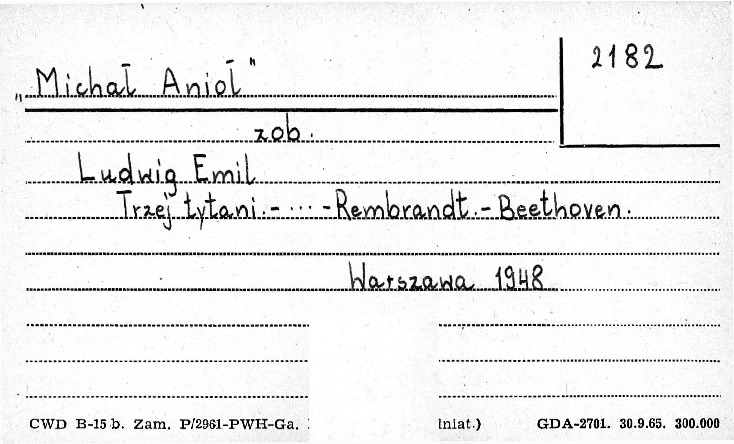 2182
„Michał Anioł"
zob.
Ludwig Emil
Trzej tytani.- ... -Rembrandt.-Beethoven.
Warszawa 1948
CWD B-15 b. Zam. P/2961-PWH-Ga. lniat.) GDA-2701. 30.9.65. 300.000